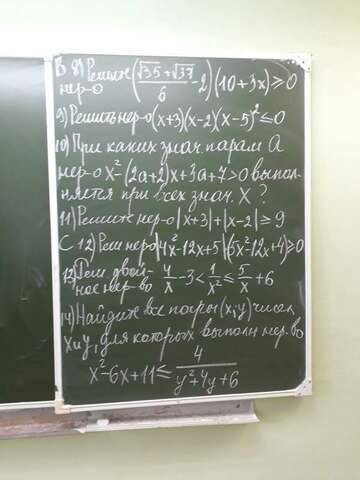 В 8) Решите нер-о ((√35+√37)/6 - 2)(10+3x) ⩾ 0
9) Решить нер-о (x+3)(x-2)(x-5)² ⩽ 0
10) При каких знач. парам. А
нер-о x²-(2a+2)x+3a+7>0 выпол-
няется при всех знач. X ?
11) Решите нер-о |x+3|+|x-2| ⩾ 9
С 12) Реш нер-о |4x²-12x+5|(5x²-12x+4)>0
13) Реш двой-
ное нер-во 4/x - 3 < 1/x² ⩽ 5/x + 6
14) Найдите все пары (x,y) чисел
x и y, для которых выполн нер-во
x²-6x+11 ⩽ 4/(y²+4y+6)